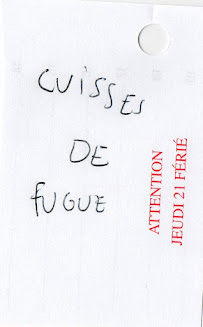 CUISSES
DE
fUGUE
ATTENTION
JEUDI 21 FÉRIÉ